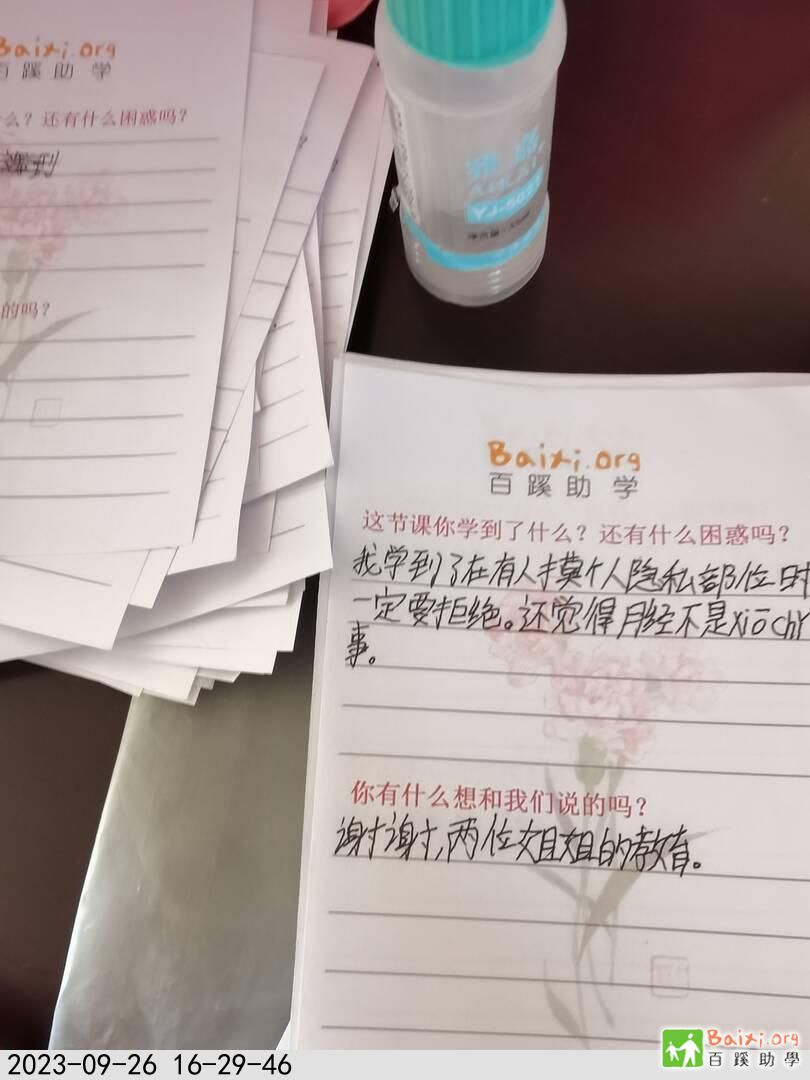 Baixi.org
百蹊助学
么？还有什么困惑吗？
的吗？
YJ-502
Baixi.org
百蹊助学
这节课你学到了什么？还有什么困惑吗？
我学到了在有人摸个人隐私部位时
一定要拒绝。还觉得月经不是xiōchǐ
事。
你有什么想和我们说的吗？
谢谢，两位姐姐的教育。
2023-09-26 16-29-46
Baixi.org
百蹊助學